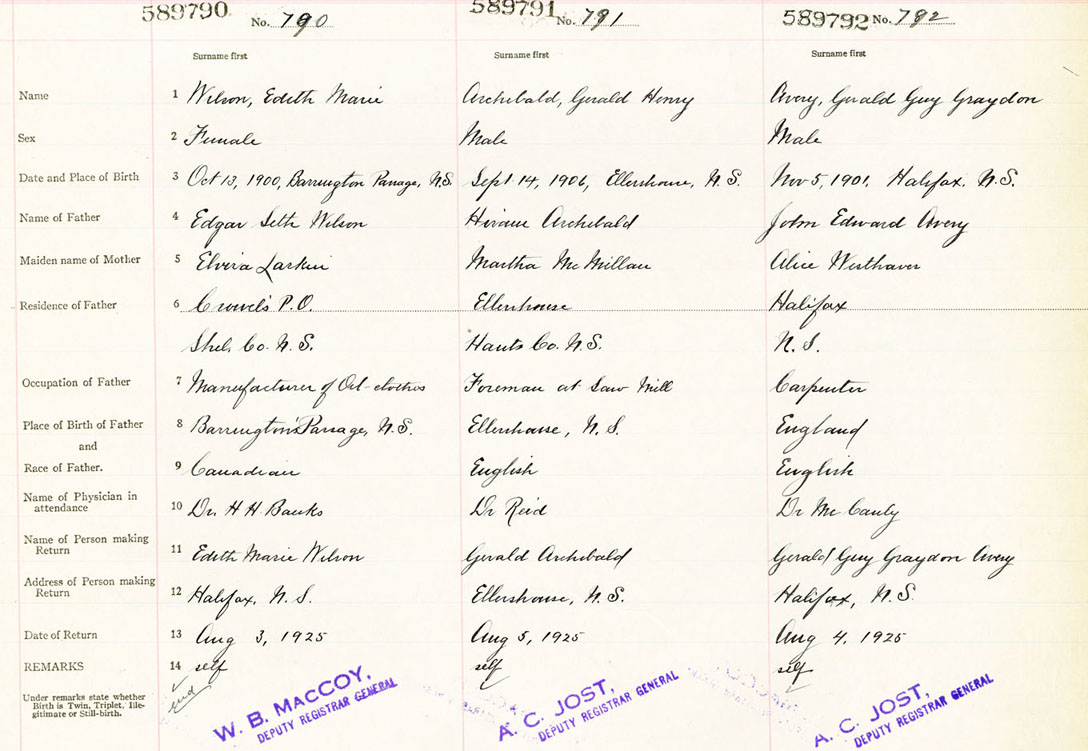 589790 No. 790 589791 No. 791 589792 No. 792
Surname first Surname first Surname first
Name 1 Wilson, Edith Marie Archibald, Gerald Henry Avery, Gerald Guy Graydon
Sex 2 Female Male Male
Date and Place of Birth 3 Oct 13, 1900, Barrington Passage, N.S. Sept 14, 1906, Ellershouse, N.S. Nov 5, 1901, Halifax, N.S.
Name of Father 4 Edgar Seth Wilson Hiram Archibald John Edward Avery
Maiden name of Mother 5 Elvira Larkin Martha McMillan Alice Westhaver
Residence of Father 6 Crowel's P.O. Ellershouse Halifax
Shel. Co. N.S. Hants Co. N.S. N.S.
Occupation of Father 7 Manufacturer of Oil-clothes Foreman at Saw Mill Carpenter
Place of Birth of Father 8 Barrington Passage, N.S. Ellershouse, N.S. England
and
Race of Father. 9 Canadian English English
Name of Physician in
attendance 10 Dr. H H Banks Dr Reid Dr McCauly
Name of Person making
Return 11 Edith Marie Wilson Gerald Archibald Gerald Guy Graydon Avery
Address of Person making
Return 12 Halifax, N.S. Ellershouse, N.S. Halifax, N.S.
Date of Return 13 Aug 3, 1925 Aug 5, 1925 Aug 4, 1925
REMARKS 14 self self self
Under remarks state whether
Birth is Twin, Triplet, Ille-
gitimate or Still-birth.
W. B. MACCOY,
DEPUTY REGISTRAR GENERAL
A. C. JOST,
DEPUTY REGISTRAR GENERAL
A. C. JOST,
DEPUTY REGISTRAR GENERAL